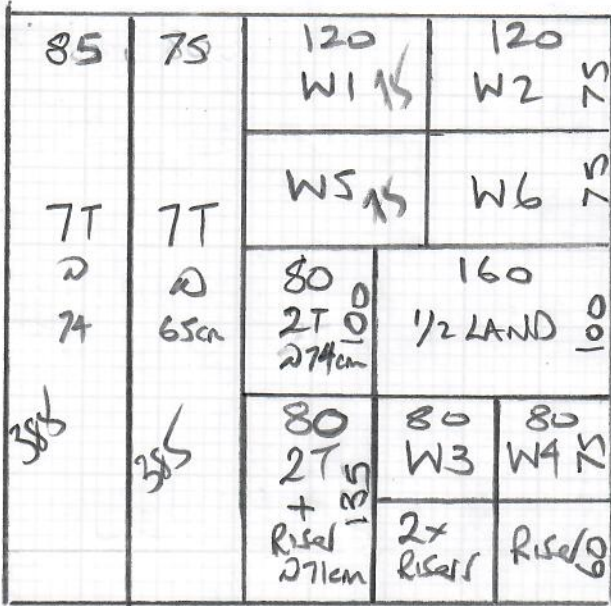 85
7T
@
74
385
75
7T
@
65cm
385
120
W1 75
120
W2 75
W5 75
W6 75
80
2T 100
@74cm
160
1/2 LAND 100
80
2T 135
+
Riser
@71cm
80
W3
80
W4 75
2x
Risers
Riser 60